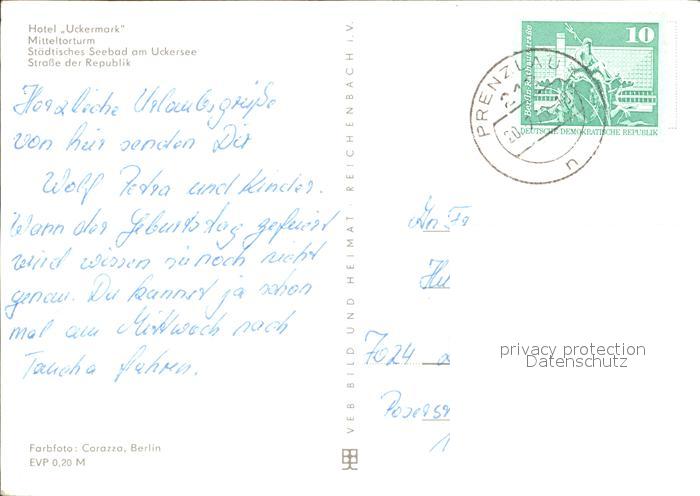 Hotel „Uckermark"
Mitteltorturm
Städtisches Seebad am Uckersee
Straße der Republik
Herzliche Urlaubsgrüße
von hier senden Dir
Wolf Petra und Kinder.
Wann der Geburtstag gefeiert
wird wissen wir noch nicht
genau. Du kannst ja schon
mal am Mittwoch nach
Taucha fahren.
Farbfoto: Corazza, Berlin
EVP 0,20 M
VEB BILD UND HEIMAT · REICHENBACH i.V.
10
Berlin-Rathausstraße
DEUTSCHE DEMOKRATISCHE REPUBLIK
PRENZLAU
n
An Fr
7024
privacy protection
Datenschutz